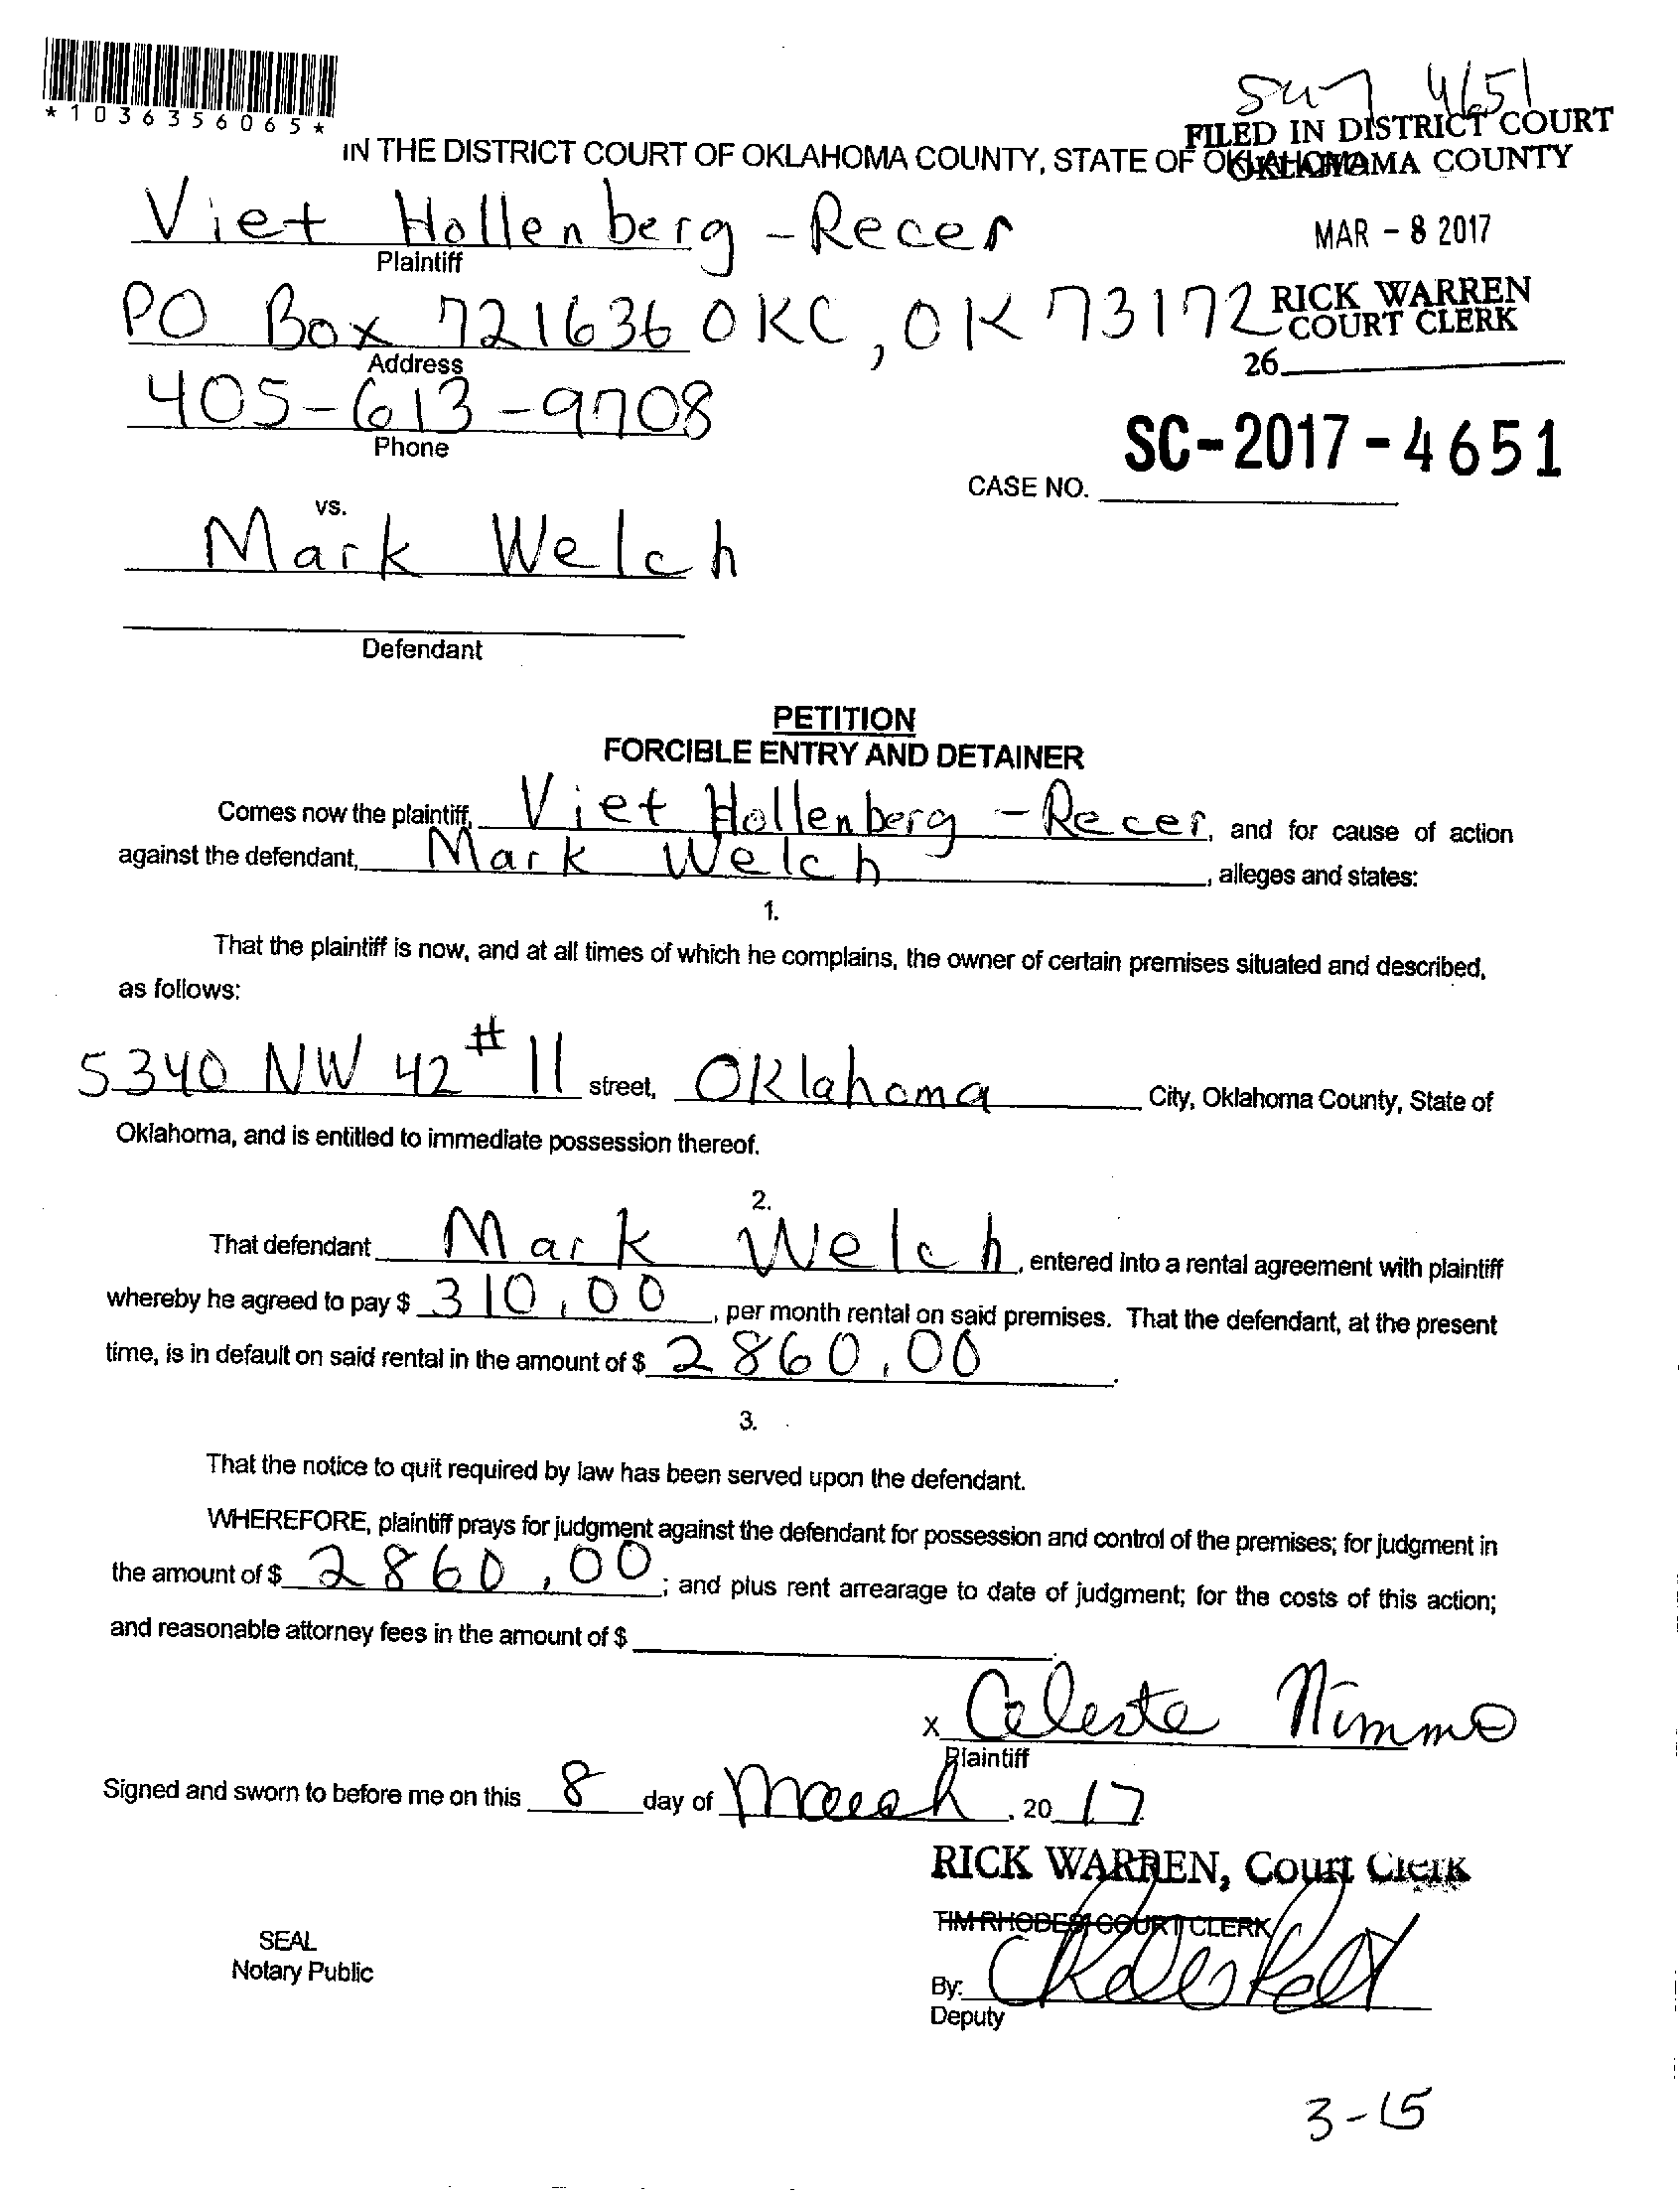 *1036356065*
4651
FILED IN DISTRICT COURT
IN THE DISTRICT COURT OF OKLAHOMA COUNTY, STATE OF OKLAHOMA
OKLAHOMA COUNTY
Viet Hollenberg-Recer
Plaintiff
MAR - 8 2017
PO Box 721636 OKC, OK 73172
RICK WARREN
COURT CLERK
Address
26
405-613-9708
Phone
SC-2017-4651
CASE NO.
vs.
Mark Welch
Defendant
PETITION
FORCIBLE ENTRY AND DETAINER
Comes now the plaintiff, Viet Hollenberg-Recer, and for cause of action
against the defendant, Mark Welch, alleges and states:
1.
That the plaintiff is now, and at all times of which he complains, the owner of certain premises situated and described,
as follows:
5340 NW 42 #11 street, Oklahoma City, Oklahoma County, State of
Oklahoma, and is entitled to immediate possession thereof.
2.
That defendant Mark Welch, entered into a rental agreement with plaintiff
whereby he agreed to pay $ 310.00, per month rental on said premises. That the defendant, at the present
time, is in default on said rental in the amount of $ 2860.00.
3.
That the notice to quit required by law has been served upon the defendant.
WHEREFORE, plaintiff prays for judgment against the defendant for possession and control of the premises; for judgment in
the amount of $ 2860.00; and plus rent arrearage to date of judgment; for the costs of this action;
and reasonable attorney fees in the amount of $
x Celeste Nimmo
Plaintiff
Signed and sworn to before me on this 8 day of March, 20 17
RICK WARREN, Court Clerk
TIM RHODES, COURT CLERK
SEAL
Notary Public
By:
Deputy
3-15